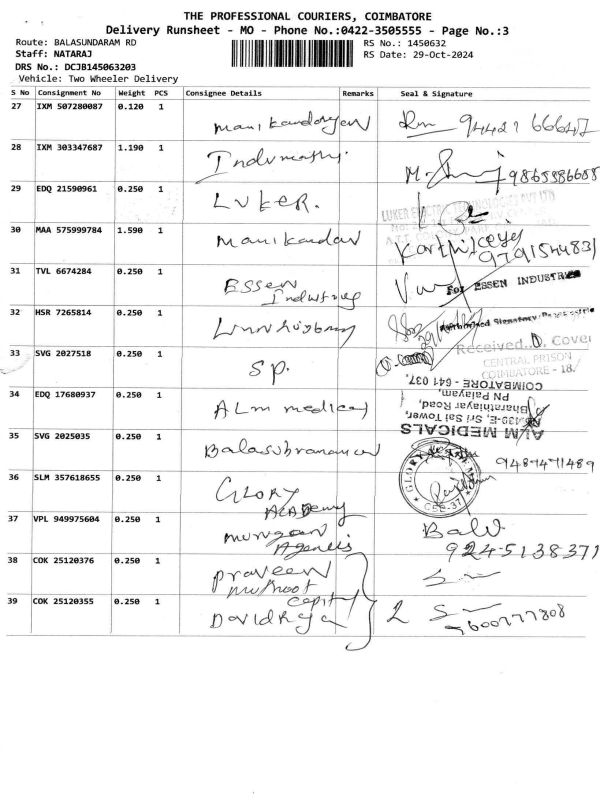 THE PROFESSIONAL COURIERS, COIMBATORE
Delivery Runsheet - MO - Phone No.:0422-3505555 - Page No.:3
Route: BALASUNDARAM RD
RS No.: 1450632
Staff: NATARAJ
RS Date: 29-Oct-2024
DRS No.: DCJB145063203
Vehicle: Two Wheeler Delivery
S No Consignment No Weight PCS Consignee Details Remarks Seal & Signature
27 IXM 507280087 0.120 1 Manikandayan
28 IXM 303347687 1.190 1 Indumathy.
29 EDQ 21590961 0.250 1 LUKER.
30 MAA 575999784 1.590 1 Manikandan
31 TVL 6674284 0.250 1 ESSEN
Industries
For ESSEN INDUSTRIES
32 HSR 7265814 0.250 1
Received. Cover
33 SVG 2027518 0.250 1 SP.
CENTRAL PRISON
COIMBATORE - 18.
34 EDQ 17680937 0.250 1 ALM medical
ALM MEDICALS
Sri Sai Tower,
Bharathiyar Road,
PN Palayam,
COIMBATORE - 641 037.
35 SVG 2025035 0.250 1 Balasubramanian
36 SLM 357618655 0.250 1 GLORY
ACADEMY
CBE-37
37 VPL 949975604 0.250 1 murugan
Agencies
Balu
9245138371
38 COK 25120376 0.250 1 praveen
muthoot
39 COK 25120355 0.250 1 David Raja
2